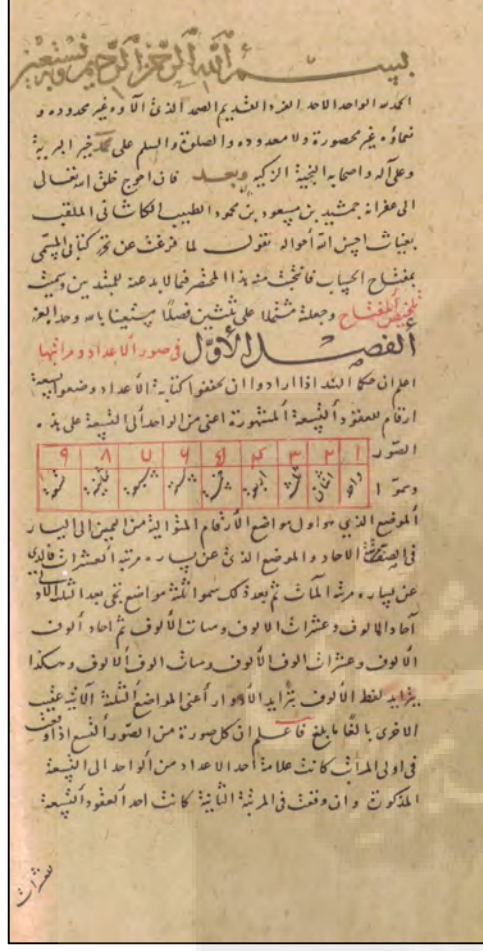 بسم الله الرحمن الرحيم وبه نستعين
الحمد لله الواحد الاحد الفرد القديم الصمد الذى آلاوه غير محدوده و
نعماؤه غير محصورة ولا معدوده والصلوة والسلم على محمد خير البرية
وعلى آله واصحابه النجية الزكيه وبعد فان احوج خلق الله تعالى
الى غفرانه جمشيد بن مسعود بن محمود الطبيب الكاشانى الملقب
بغياث احسن الله أحواله يقول لما فرغت عن كتابى المسمى
بمفتاح الحساب فانتخبت منه هذا المختصر فما لابد عنه للمبتدين وسميته
تلخيص المفتاح وجعلته مشتملا على ثلثين فصلا مستعينا بالله وحد العزيز
الفصل الأول فى صور الاعداد ومراتبها
اعلم ان حكما الهند اذا ارادوا ان يخففوا كتابة الاعداد وضعوا تسعة
ارقام للعقود التسعة المشهورة اعنى من الواحد الى التسعة على هذه
الصور ١ ٢ ٣ ۴ ۵ ۶ ٧ ٨ ٩
واحد اثنان ثلثة اربعة خمسة ستة سبعة ثمانية تسعة
وسموا
الموضع الذى هو اول مواضع الأرقام المتوالية من اليمين الى اليسار
فى الصف مرتبة الاحاد والموضع الذى عن يساره مرتبة العشرات والذى
عن يساره مرتبة المآت ثم بعد ذلك سموا ثلثة مواضع تجى بعد الثلثة الاولى
آحاد الالوف وعشرات الالوف ومآت الألوف ثم احاد ألوف
الألوف وعشرات الوف الألوف ومآت الوف الألوف وهكذا
يتزايد لفظ الألوف بتزايد الأدوار أعنى المواضع الثلثة الآتية عقيب
الاخرى بالغا ما بلغ فاعلم ان كل صورة من الصور التسع اذا وقعت
فى اولى المراتب كانت علامة أحد الاعداد من الواحد الى التسعة
المذكورة وان وقعت فى المرتبة الثانية كانت احد العقود التسعة
عشرات